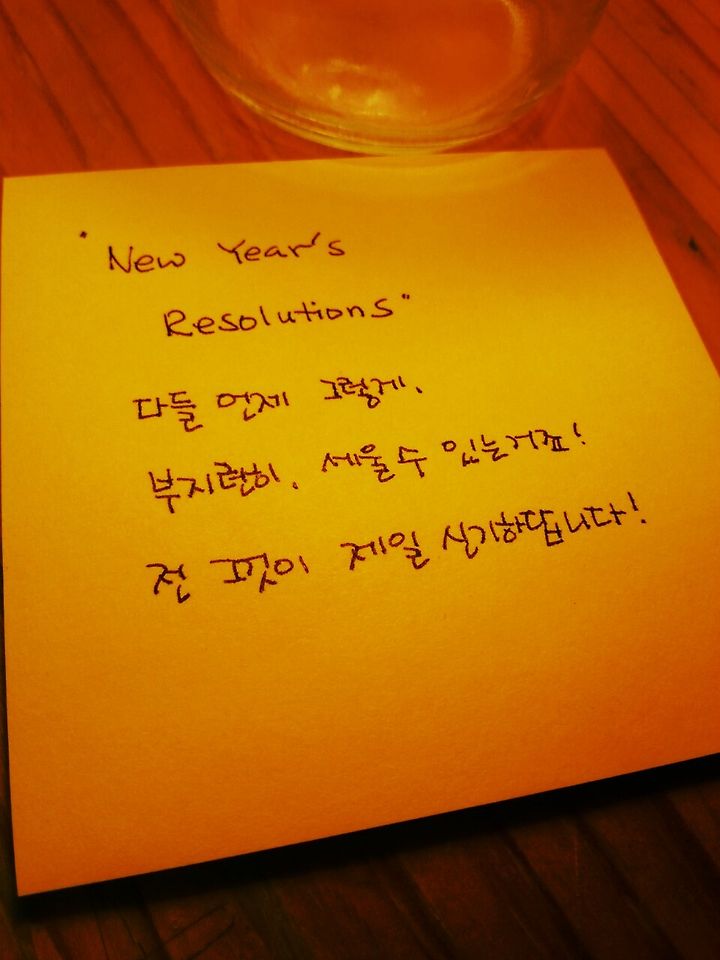 "New Year's
Resolutions"
다들 언제 그렇게.
부지런히. 세울 수 있는거죠!
전 그것이 제일 신기하답니다!